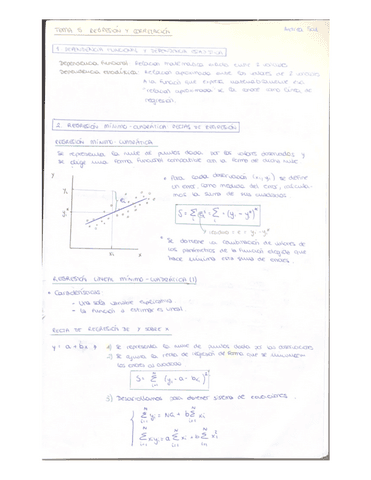 TEMA 5: REGRESIÓN Y CORRELACIÓN
1. DEPENDENCIA FUNCIONAL Y DEPENDENCIA ESTADÍSTICA
Dependencia funcional: Relación matemática exacta entre 2 variables.
Dependencia estadística: Relación aproximada entre los valores de 2 variables
A la función que expresa matemáticamente esa
"relación aproximada" se la conoce como línea de
regresión.
2. REGRESIÓN MÍNIMO-CUADRÁTICA: RECTAS DE REGRESIÓN
REGRESIÓN MÍNIMO-CUADRÁTICA
Se representa la nube de puntos dada por los valores observados y
se elige una forma funcional compatible con la forma de dicha nube
• Para cada observación (xi, yi) se define
un error, como medida del error, calcula-
mos la suma de sus cuadrados
S = Σ ei² = Σ (yi - yi*)²
residuo = e = yi - yi*
• Se obtiene la combinación de valores de
los parámetros de la función elegida que
hace mínima esta suma de errores.
y
yi
yi*
ei
xi
x
REGRESIÓN LINEAL MÍNIMO-CUADRÁTICA (I)
• Características
- Una sola variable explicativa
- La función a estimar es lineal
RECTA DE REGRESIÓN DE Y SOBRE X
y = a + bx
1) Se representa la nube de puntos dada por las observaciones
2) Se ajusta la recta de regresión de forma que se minimicen
los errores al cuadrado
S = Σ (yi - a - bxi)²
3) Desarrollamos para obtener sistema de ecuaciones.
Σ yi = Na + b Σ xi
Σ xi yi = a Σ xi + b Σ xi²